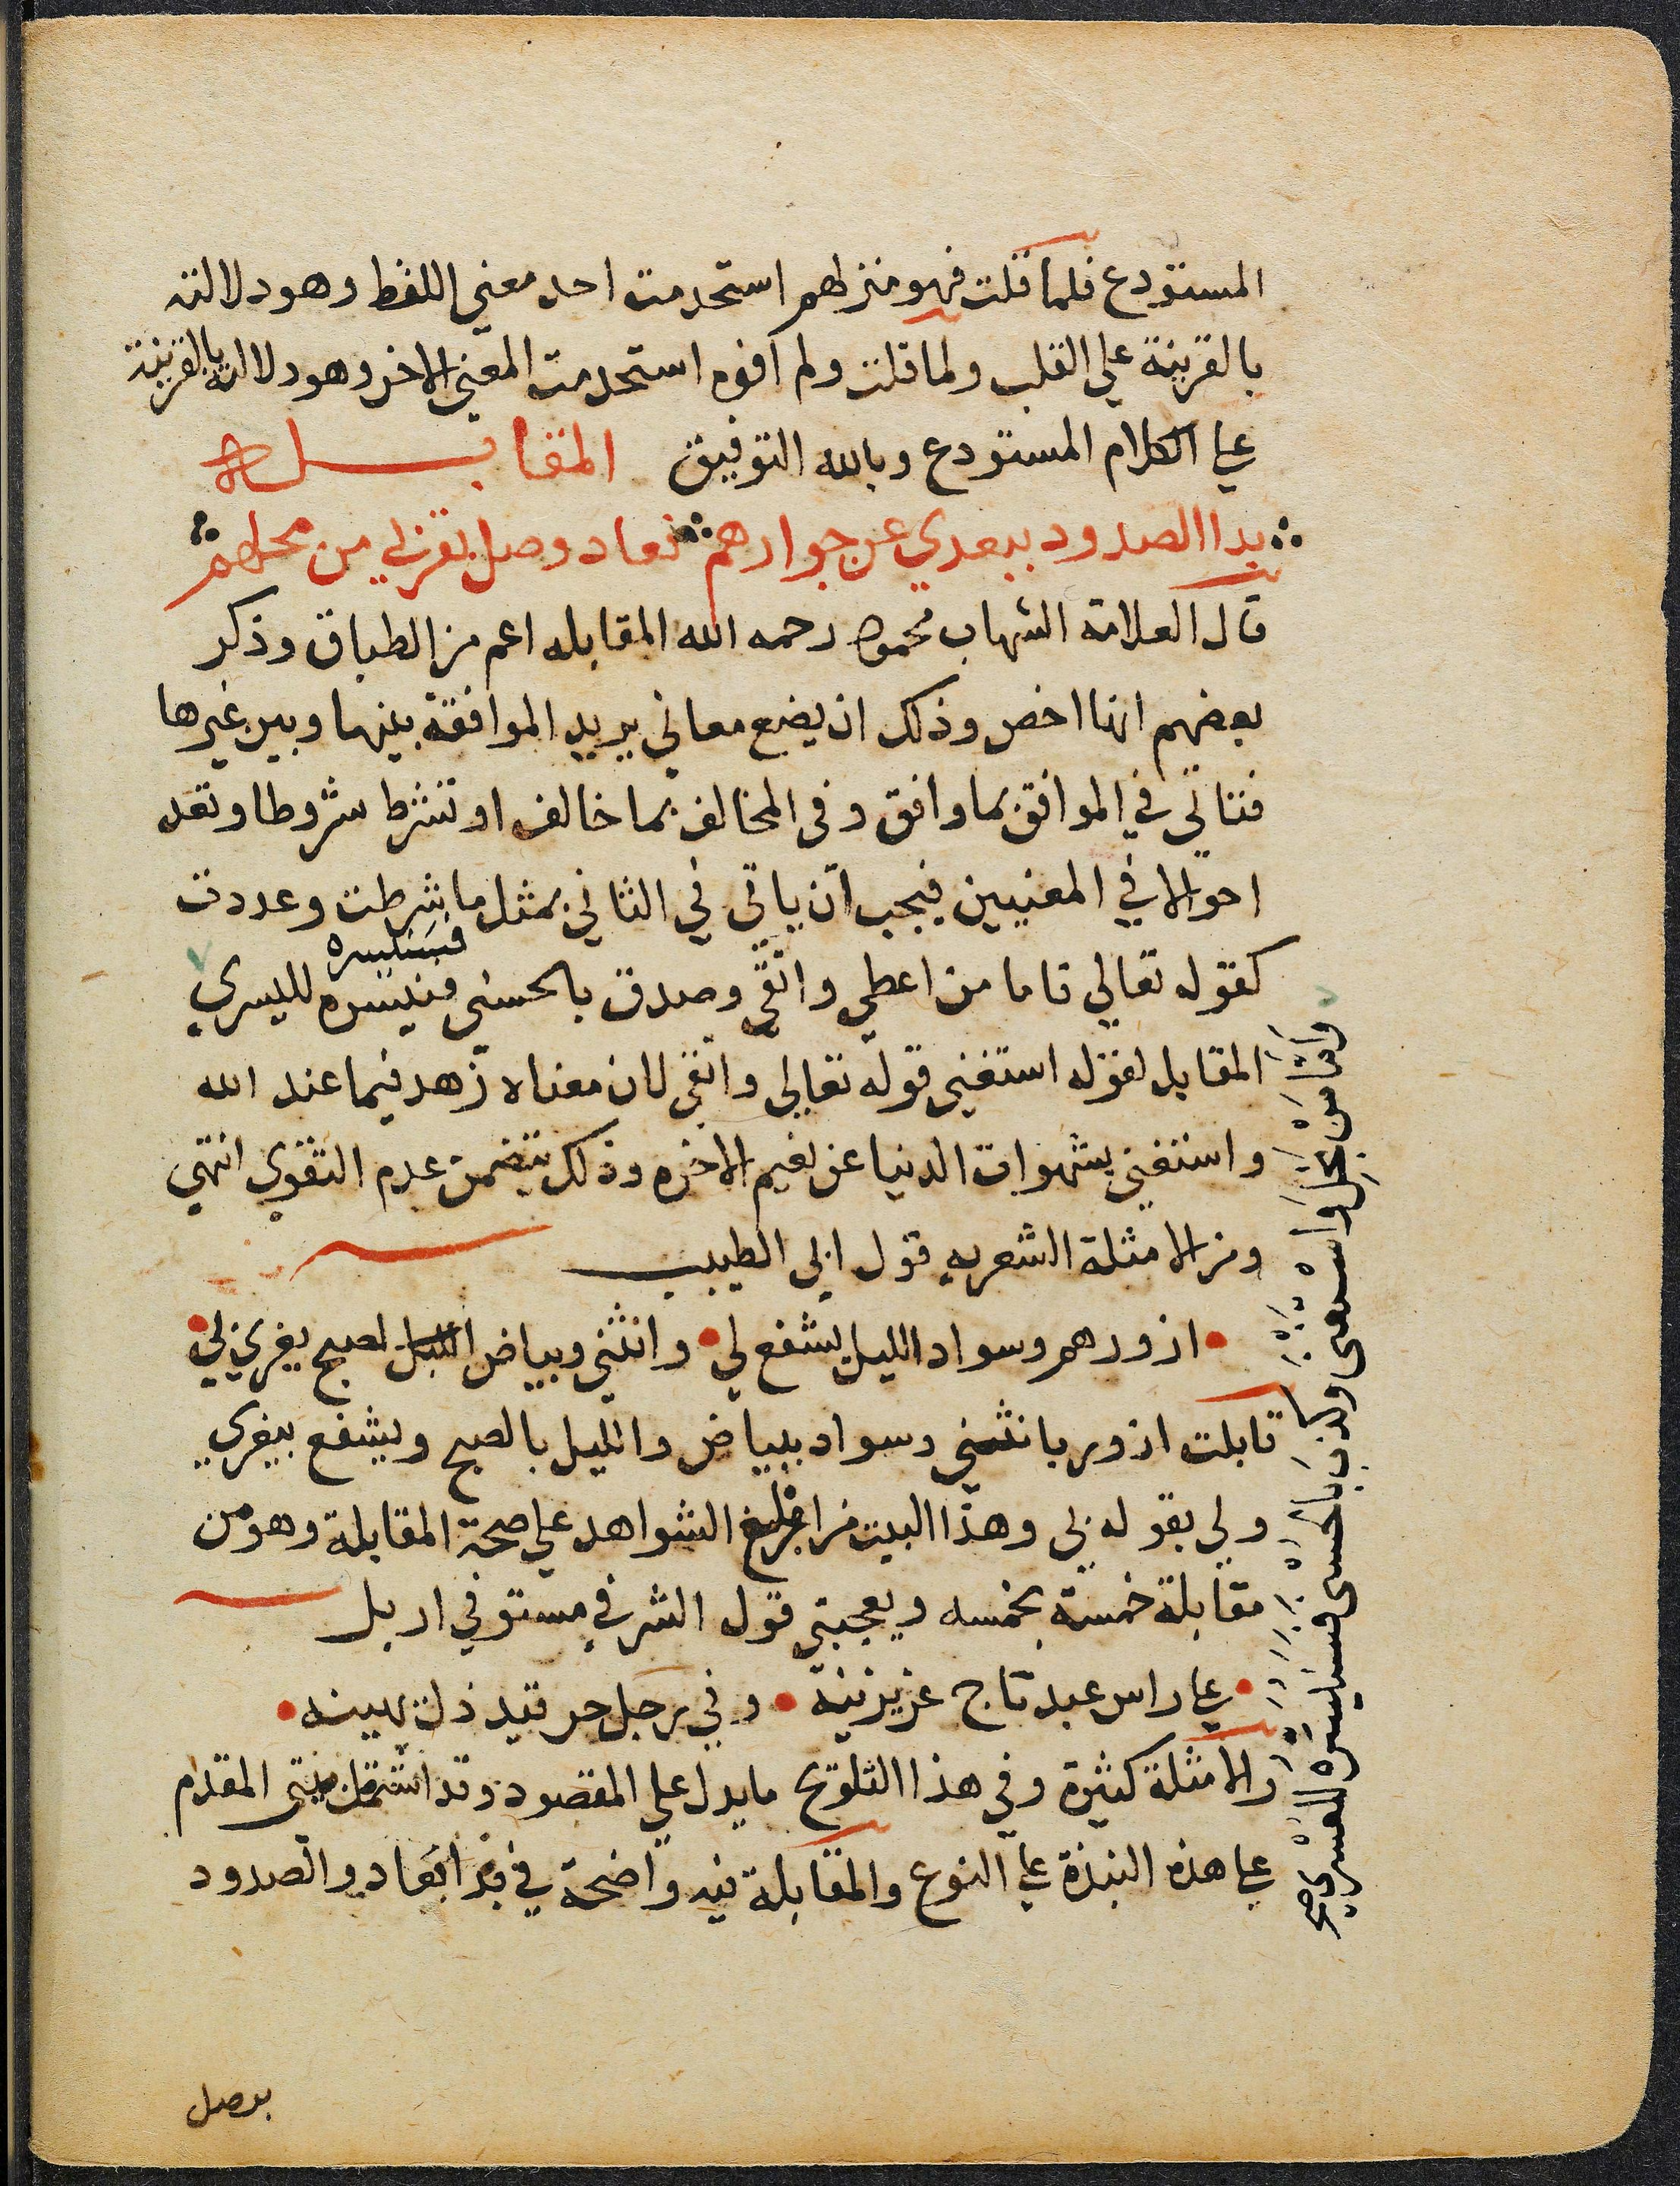 المستودع فلما قلت فهو منزلهم استخدمت احد معني اللفظ وهو دلالته
بالقرينة علي القلب ولما قلت ولم افوه استخدمت المعني الاخر وهو دلالته بالقرينة
علي الكلام المستودع وبالله التوفيق المقابله
بدا الصدود ببعدي عن جوارهم فعاد وصل بقربي من محلهم
قال العلامة الشهاب محمود رحمه الله المقابله اعم من الطباق وذكر
بعضهم انها اخص وذلك ان يضع معاني يريد الموافقة بينها وبين غيرها
فتاتي في الموافق بما وافق وفي المخالف بما خالف او تشرط شروطا وتعد
احوالا في المعنيين فيجب ان ياتي في الثاني بمثل ما شرطت وعددت
فسنيسره
كقوله تعالي فاما من اعطي واتقي وصدق بالحسني فنيسره لليسري
المقابل لقوله استغني قوله تعالي واتقي لان معناه زهد فيما عند الله
واستغني بشهوات الدنيا عن نعيم الاخره وذلك يتضمن عدم التقوي انتهي
ومن الامثلة الشعريه قول ابي الطيب
ازورهم وسواد الليل يشفع لي وانثني وبياض الصبح يغري بي
قابلت ازور بانثني وسواد ببياض والليل بالصبح ويشفع بيغري
ولي بقوله بي وهذا البيت من الشواهد علي صحة المقابلة وهو من
مقابلة خمسة بخمسه ويعجبني قول الشرفي مستوفي اربل
علي راس عبد تاج عز يزينه وفي رجل حر قيد ذل يهينه
والامثلة كثيرة وفي هذا التلويح ما يدل علي المقصود وقد اشتمل بيتي المقدام
علي هذه النبذة علي النوع والمقابلة فيه واضحة في بدا بعاد والصدود
بوصل
وَاَمَّا مَنْ بَخِلَ وَاسْتَغْنَى وَكَذَّبَ بِالْحُسْنَى فَسَنُيَسِّرُهُ لِلْعُسْرَى صح